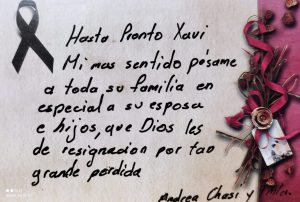 Hasta Pronto Xavi
Mi mas sentido pésame
a toda su familia en
especial a su esposa
e hijos, que Dios les
de resignacion por tao
grande perdida
Andrea Chasi y